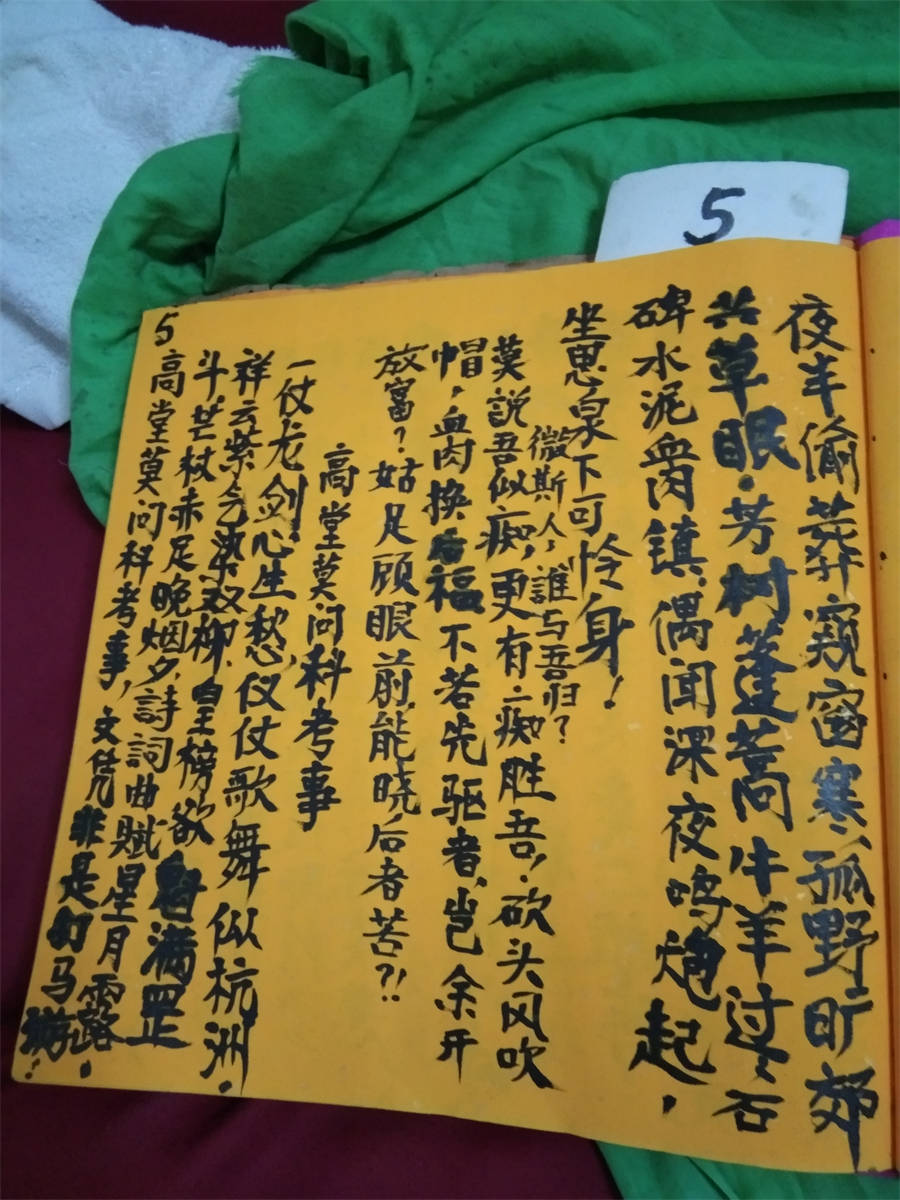 5
夜半偷葬窥窗寒、孤野旷郊
共草眠。芳树蓬蒿牛羊过、石
碑水泥血肉镇，偶闻深夜鸣炮起，
坐思泉下可怜身！
微斯人，誰与吾归？
莫說吾似痴，更有二痴胜吾，砍头风吹
帽，血肉换后福不若先驱者，岂余开
放富？姑足顾眼前，能晓后者苦？!!
高堂莫问科考事
一仗龙剑心生愁，仪仗歌舞似杭洲。
祥云紫气染双柳，皇榜欲魁满罡
斗。芒杖赤足晚烟夕，詩詞曲赋星月露。
高堂莫问科考事，文凭非是幻马游！
5